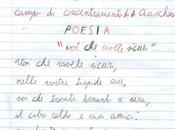 campo di concentramento di Auschwitz
POESIA
"voi che vivete sicuri"
Voi che vivete sicuri
nelle vostre tiepide case,
voi che trovate tornando a sera,
il cibo caldo e visi amici: